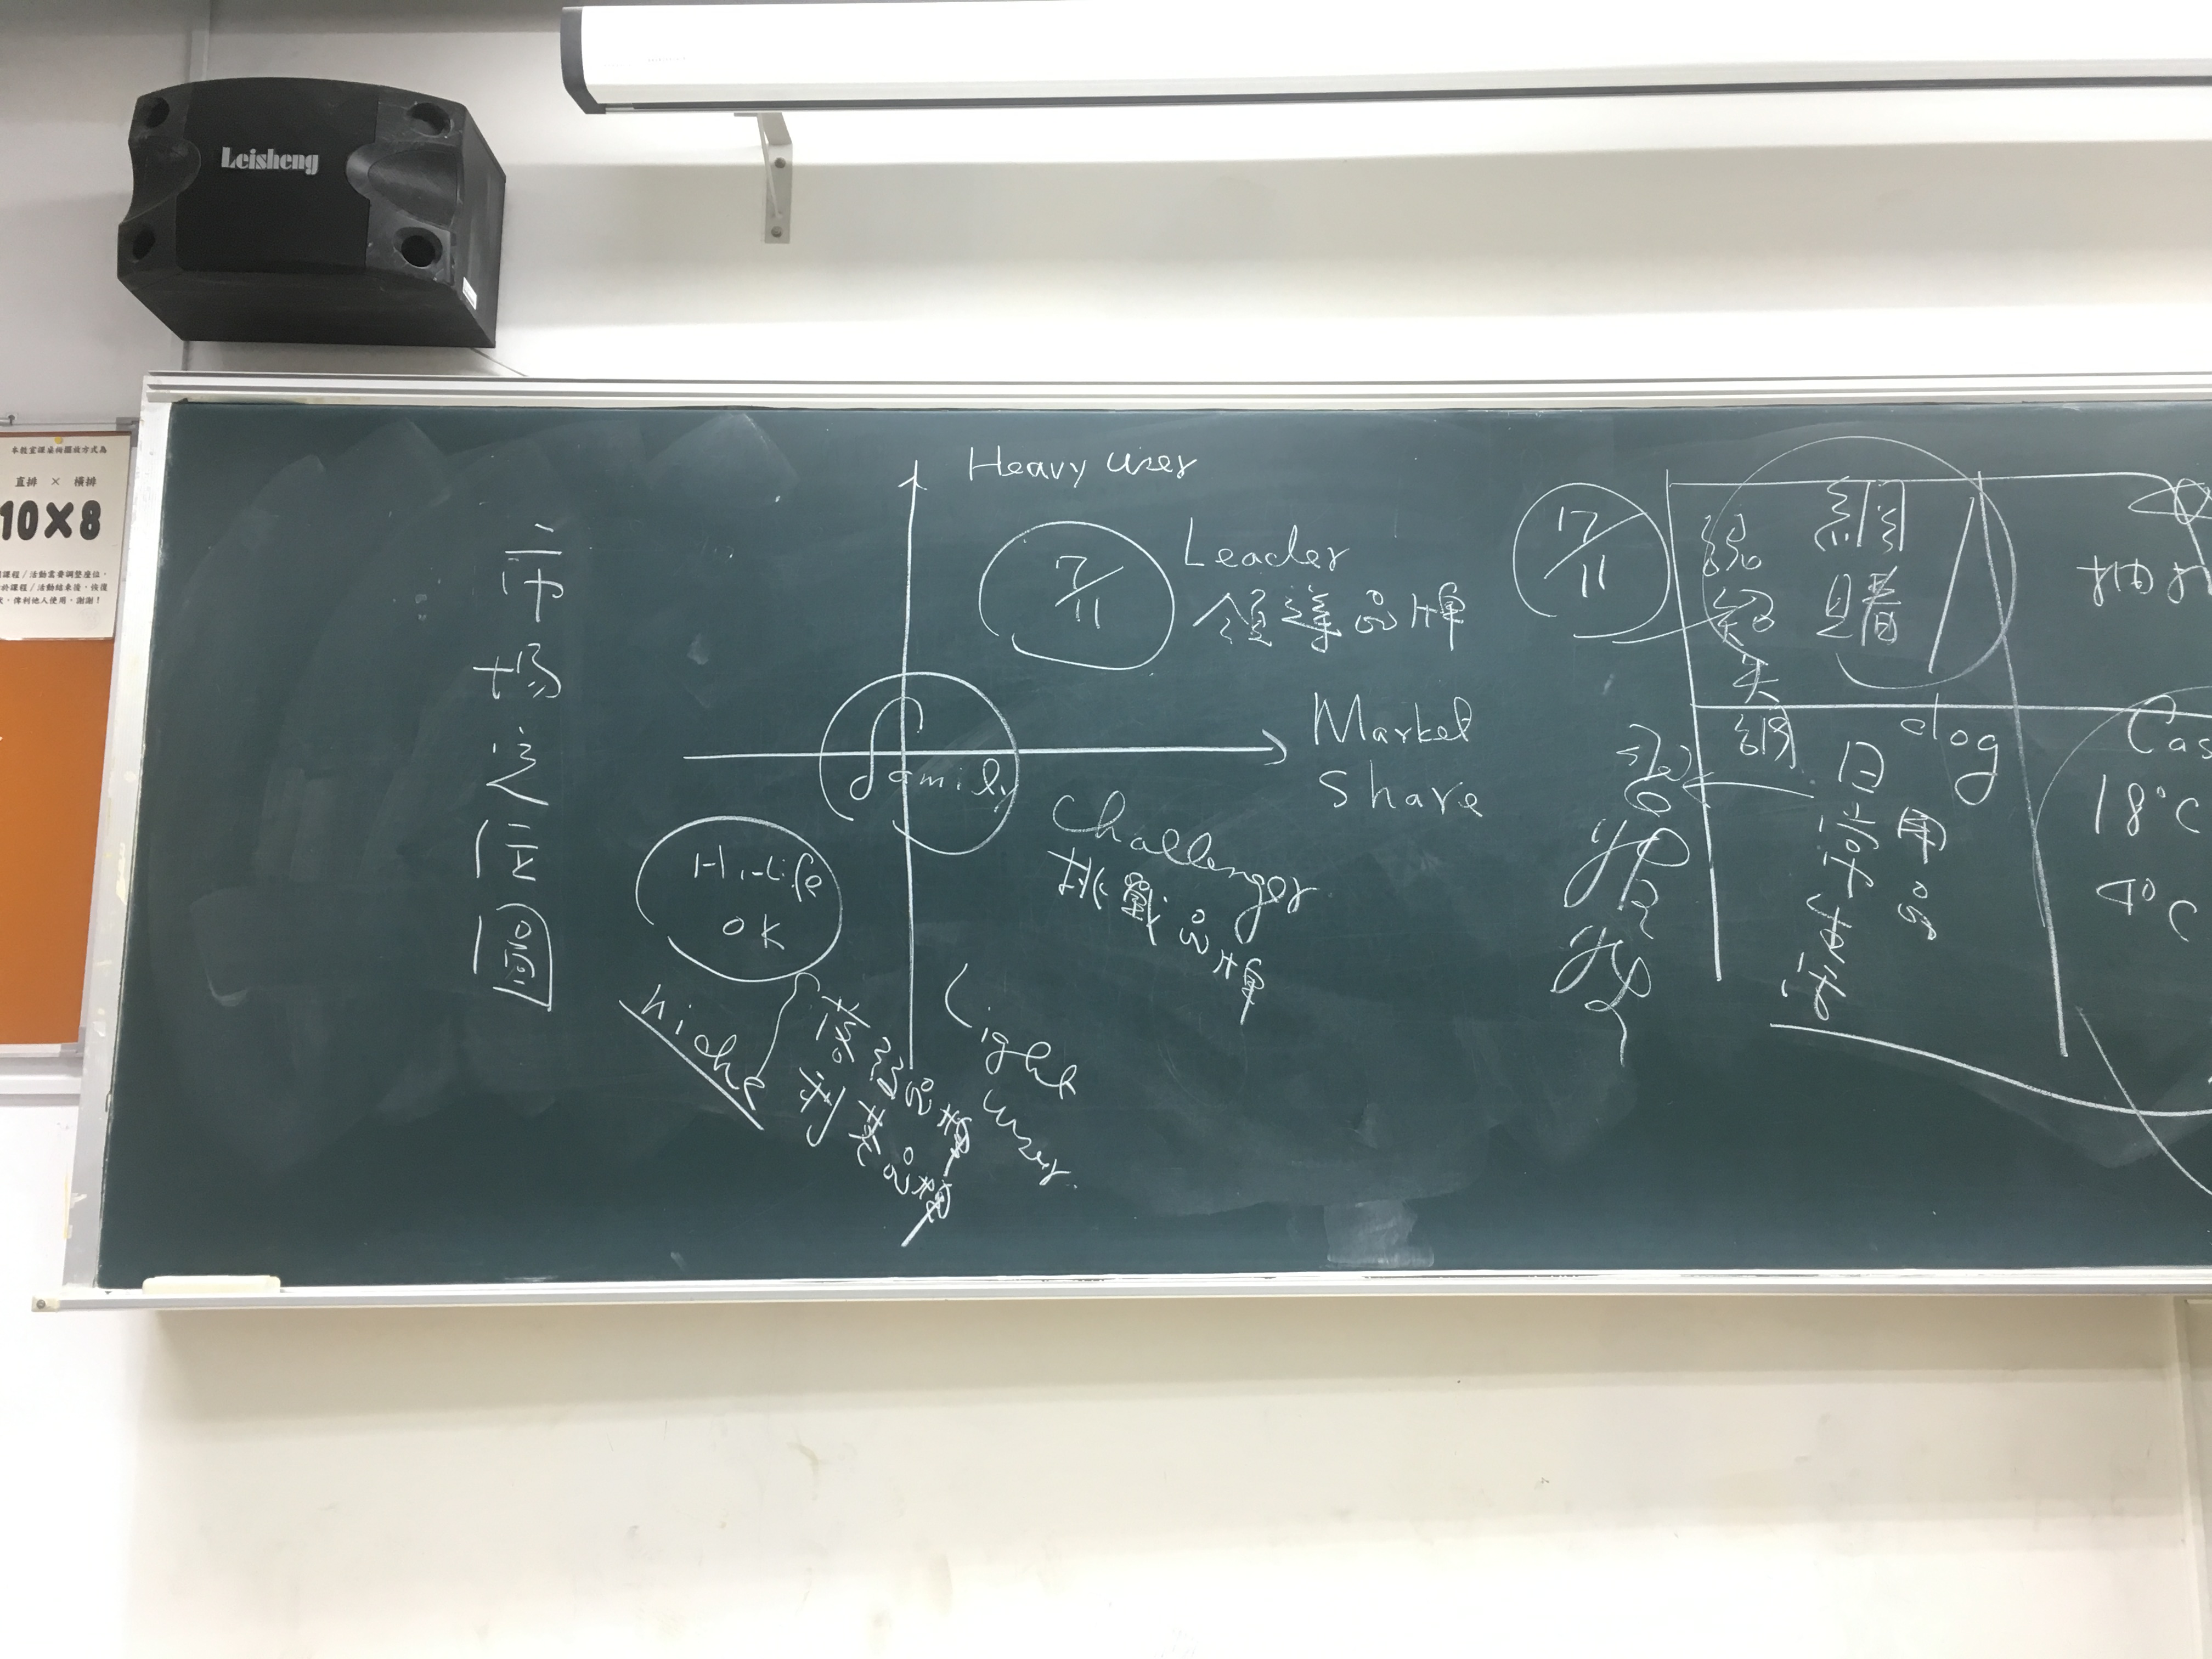 Leisheng
本教室課桌椅擺放方式為
直排 × 橫排
10×8
課程/活動需要調整座位，
於課程/活動結束後，恢復
，俾利他人使用，謝謝！
市場定位圖
Heavy user
7/11
Leader
領導品牌
Market
Share
Family
Challenger
挑戰品牌
Hi-Life
OK
niche
落後品牌
利基品牌
Light
user.
7/11
網
購
dog
日常生活
用品
抽
Cas
18°C
4°C